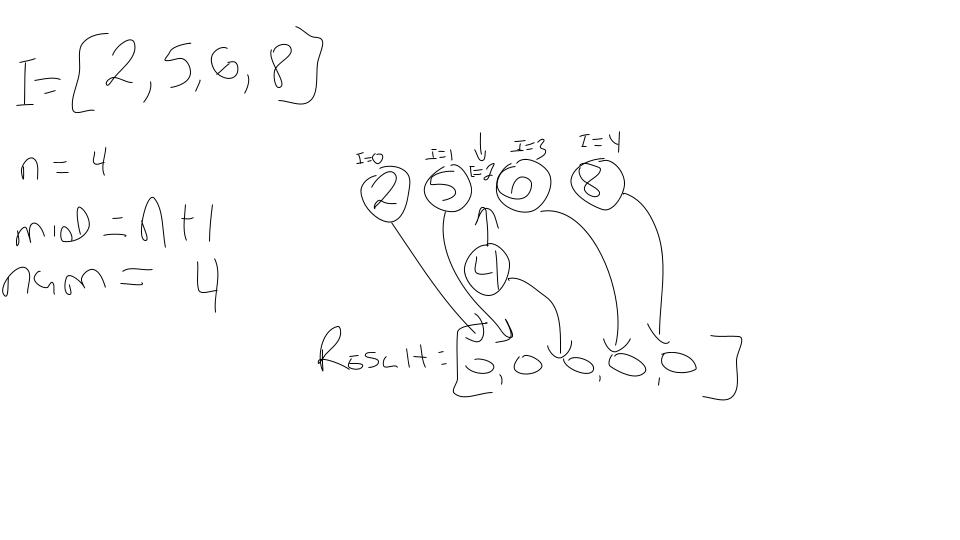 I=[2,5,6,8]
n = 4
mid = n+1
num = 4
I=0 I=1 I=2 I=3 I=4
2 5 6 8
4
Result=[0,0 0,0,0]